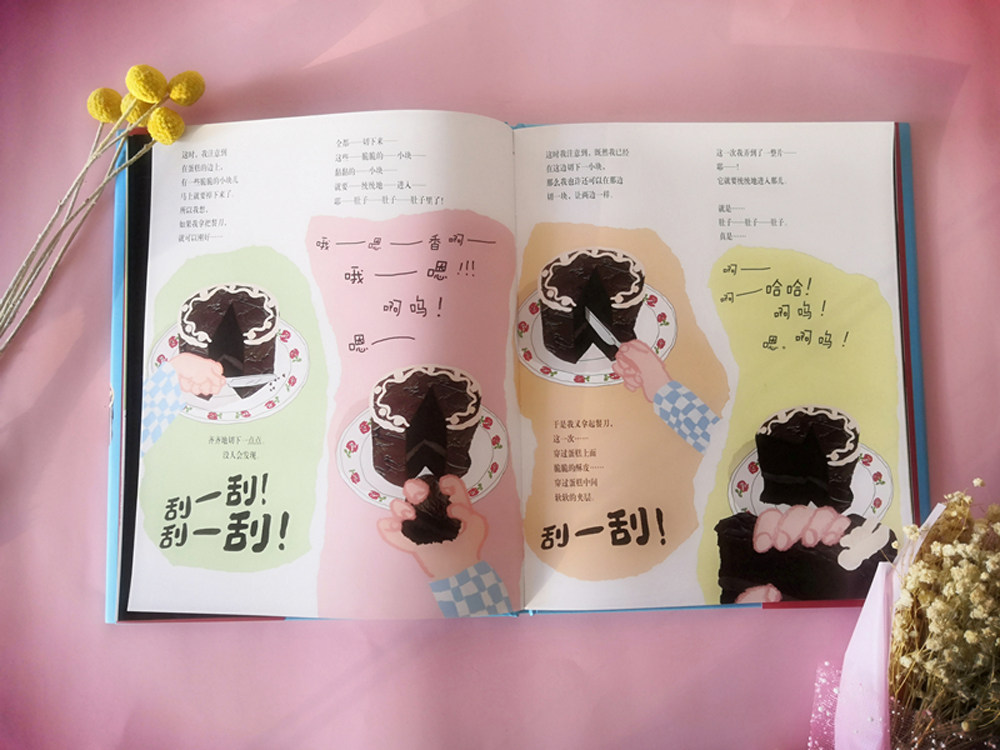 这时，我注意到
在蛋糕的边上，
有一些脆脆的小块儿
马上就要掉下来了.
所以我想，
如果我拿把餐刀，
就可以刚好——
齐齐地切下一点点.
没人会发现.
刮一刮！
刮一刮！
全都——切下来——
这些——脆脆的——小块——
黏黏的——小块——
就要——慢慢地——进入——
耶——肚子——肚子——肚子里了！
哦——嗯——香啊——
哦——嗯！！！
啊呜！
嗯——
这时我注意到，既然我已经
在这边切下一小块，
那么我也许还可以在那边
切一块，让两边一样.
于是我又拿起餐刀，
这一次——
穿过蛋糕上面
脆脆的酥皮——
穿过蛋糕中间
软软的夹层.
刮一刮！
这一次我弄到了一整片——
耶——！
它就要慢慢地进入那儿.
就是——
肚子——肚子——肚子.
真是——
啊——
啊——哈哈！
啊呜！
嗯，啊呜！